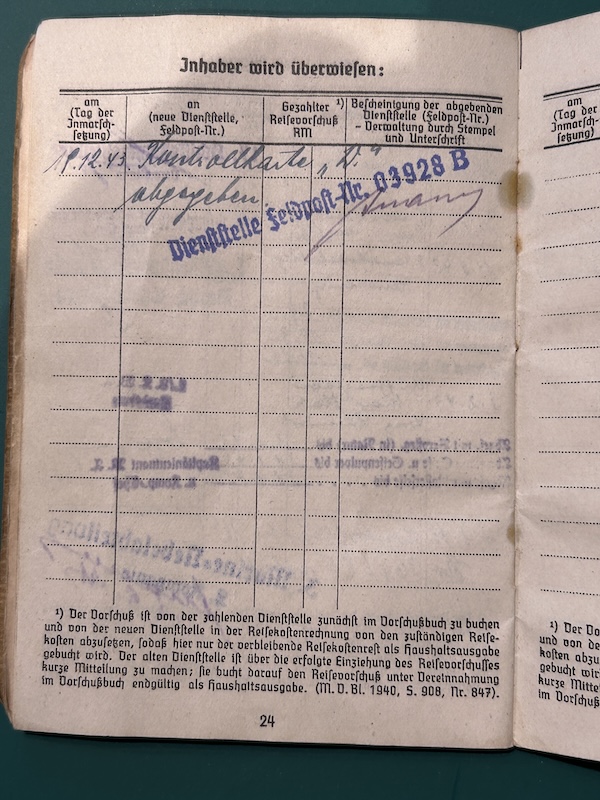 Inhaber wird überwiesen:
am
(Tag der
Inmarsch-
setzung)
an
(neue Dienststelle,
Feldpost-Nr.)
Gezahlter ¹)
Reisevorschuß
RM
Bescheinigung der abgebenden
Dienststelle (Feldpost-Nr.)
- Verwaltung durch Stempel
und Unterschrift
19.12.43. Kontrollkarte „D."
abgegeben.
Dienststelle Feldpost-Nr. 03928 B
¹) Der Vorschuß ist von der zahlenden Dienststelle zunächst im Vorschußbuch zu buchen
und von der neuen Dienststelle in der Reisekostenrechnung von den zuständigen Reise-
kosten abzusetzen, sodaß hier nur der verbleibende Reisekostenrest als Haushaltsausgabe
gebucht wird. Der alten Dienststelle ist über die erfolgte Einziehung des Reisevorschusses
kurze Mitteilung zu machen; sie bucht darauf den Reisevorschuß unter Vereinnahmung
im Vorschußbuch endgültig als Haushaltsausgabe. (M. D. Bl. 1940, S. 908, Nr. 847).
24
am
(Tag der
Inmarsch-
setzung)
¹) Der Vo
und von de
kosten abzu
gebucht wir
kurze Mitte
im Vorschuß